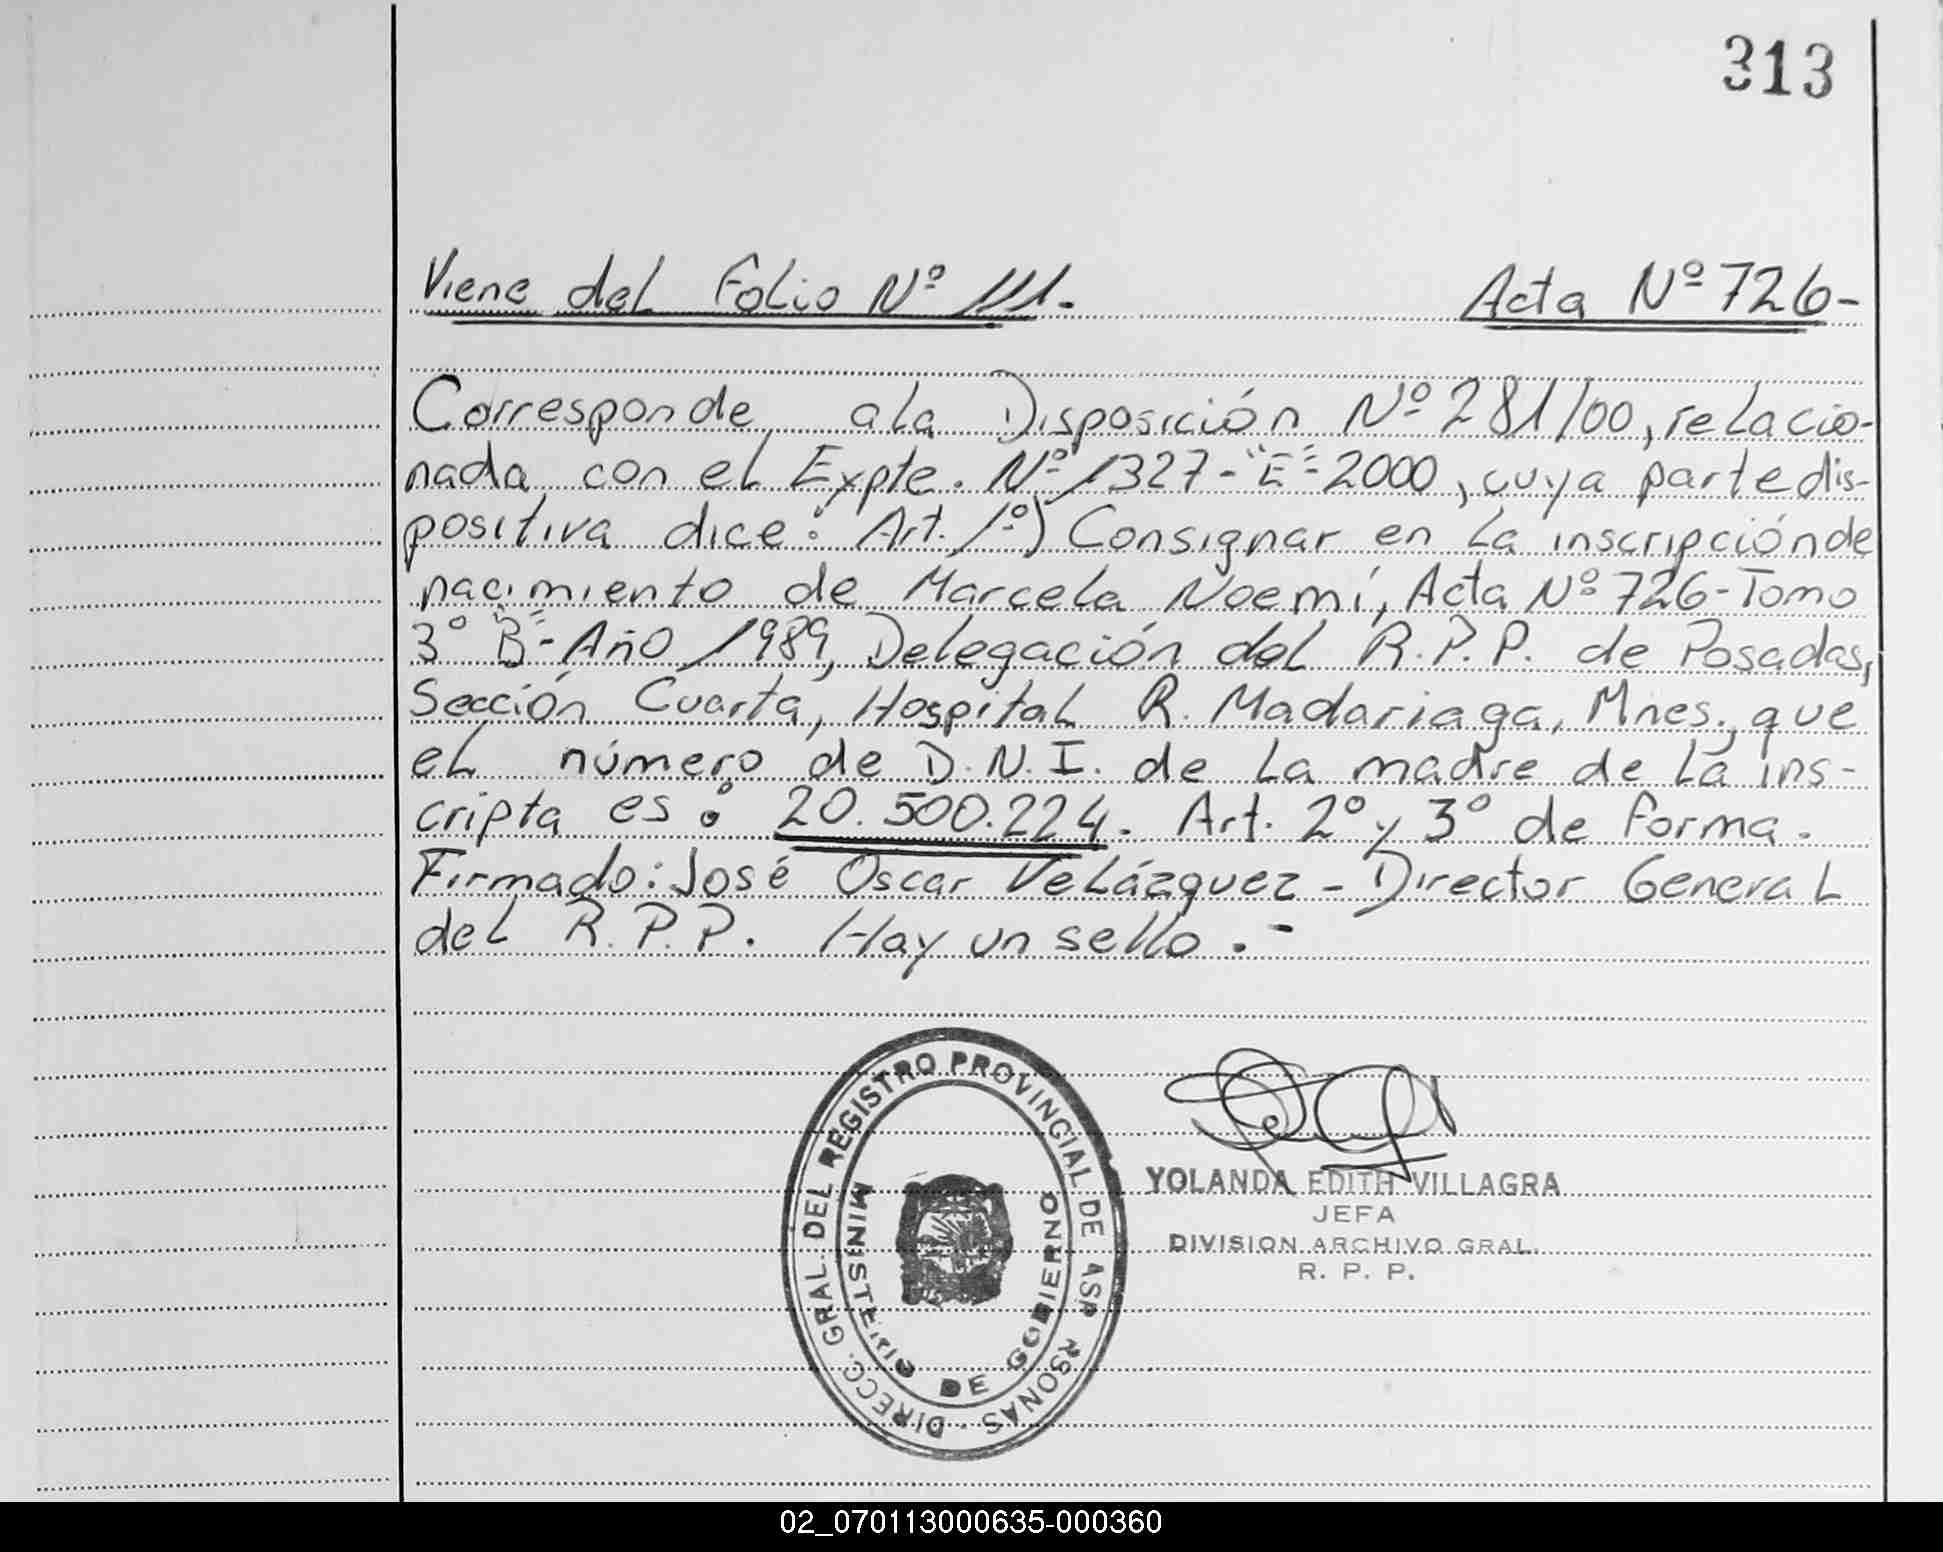 313
Viene del Folio Nº 111.- Acta Nº 726-
Corresponde a la Disposición Nº 281/00, relacio-
nada con el Expte. Nº 1327-"E"-2000, cuya parte dis-
positiva dice: Art. 1º) Consignar en la inscripción de
nacimiento de Marcela Noemí, Acta Nº 726-Tomo
3º "B"-Año 1989, Delegación del R.P.P. de Posadas,
Sección Cuarta, Hospital R. Madariaga, Mnes., que
el número de D.N.I. de la madre de la ins-
cripta es: 20.500.224. Art. 2º y 3º de forma.
Firmado: José Oscar Velázquez - Director General
del R.P.P. Hay un sello.-
DIRECC. GRAL. DEL REGISTRO PROVINCIAL DE LAS PERSONAS
MINISTERIO DE GOBIERNO
YOLANDA EDITH VILLAGRA
JEFA
DIVISION ARCHIVO GRAL.
R. P. P.
02_070113000635-000360